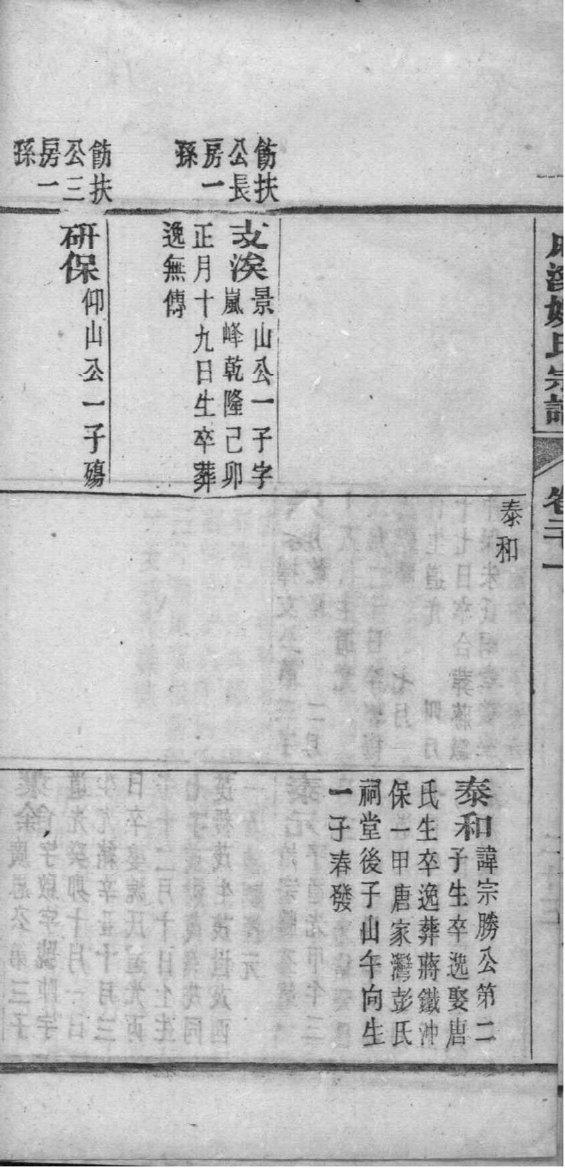 氏宗譜
卷二十一
飭扶
公長
房一
孫
飭扶
公三
房一
孫
景山公一子字
嵐峰乾隆己卯
正月十九日生卒葬
逸無傳
研保
仰山公一子殤
泰和
泰和
諱宗勝公第二
子生卒逸娶唐
氏生卒逸葬蔣鐵冲
保一甲唐家灣彭氏
祠堂後子山午向生
一子春發